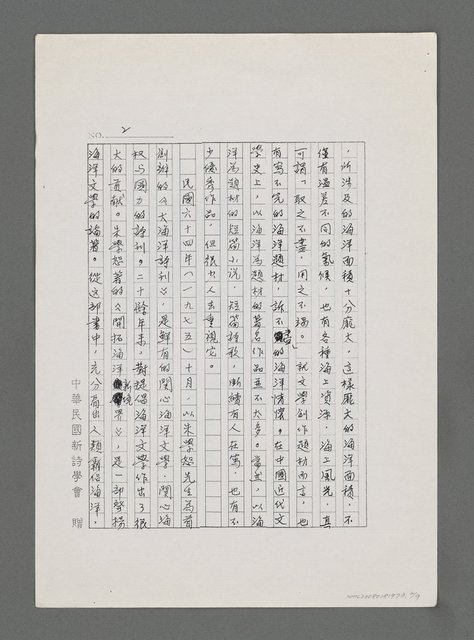 NO. 2
，所涉及的海洋面積十分龐大，這樣龐大的海洋面積，不
僅有溫差不同的氣候，也有各種海上資源，海上風光，真
可謂「取之不盡，用之不竭。」就文學創作題材而言，也
有寫不完的海洋題材，訴不盡的海洋情懷。在中國近代文
學史上，以海洋為題材的著名作品並不太多。當然，以海
洋為題材的短篇小說，短篇詩歌，斷續有人在寫，也有不
少優秀作品，但很少人去重視它。
民國六十四年（一九七五）十月，以朱學恕先生為首
創辦的《大海洋詩刊》，是鮮有的關心海洋文學，關心海
权與國力的詩刊。二十餘年來，對提倡海洋文學作出了很
大的貢献。朱學恕著的《開拓海洋新境界》，是一部聲揚
海洋文學的論著。從這部書中，充分看出人類親近海洋，
中華民國新詩學會 贈